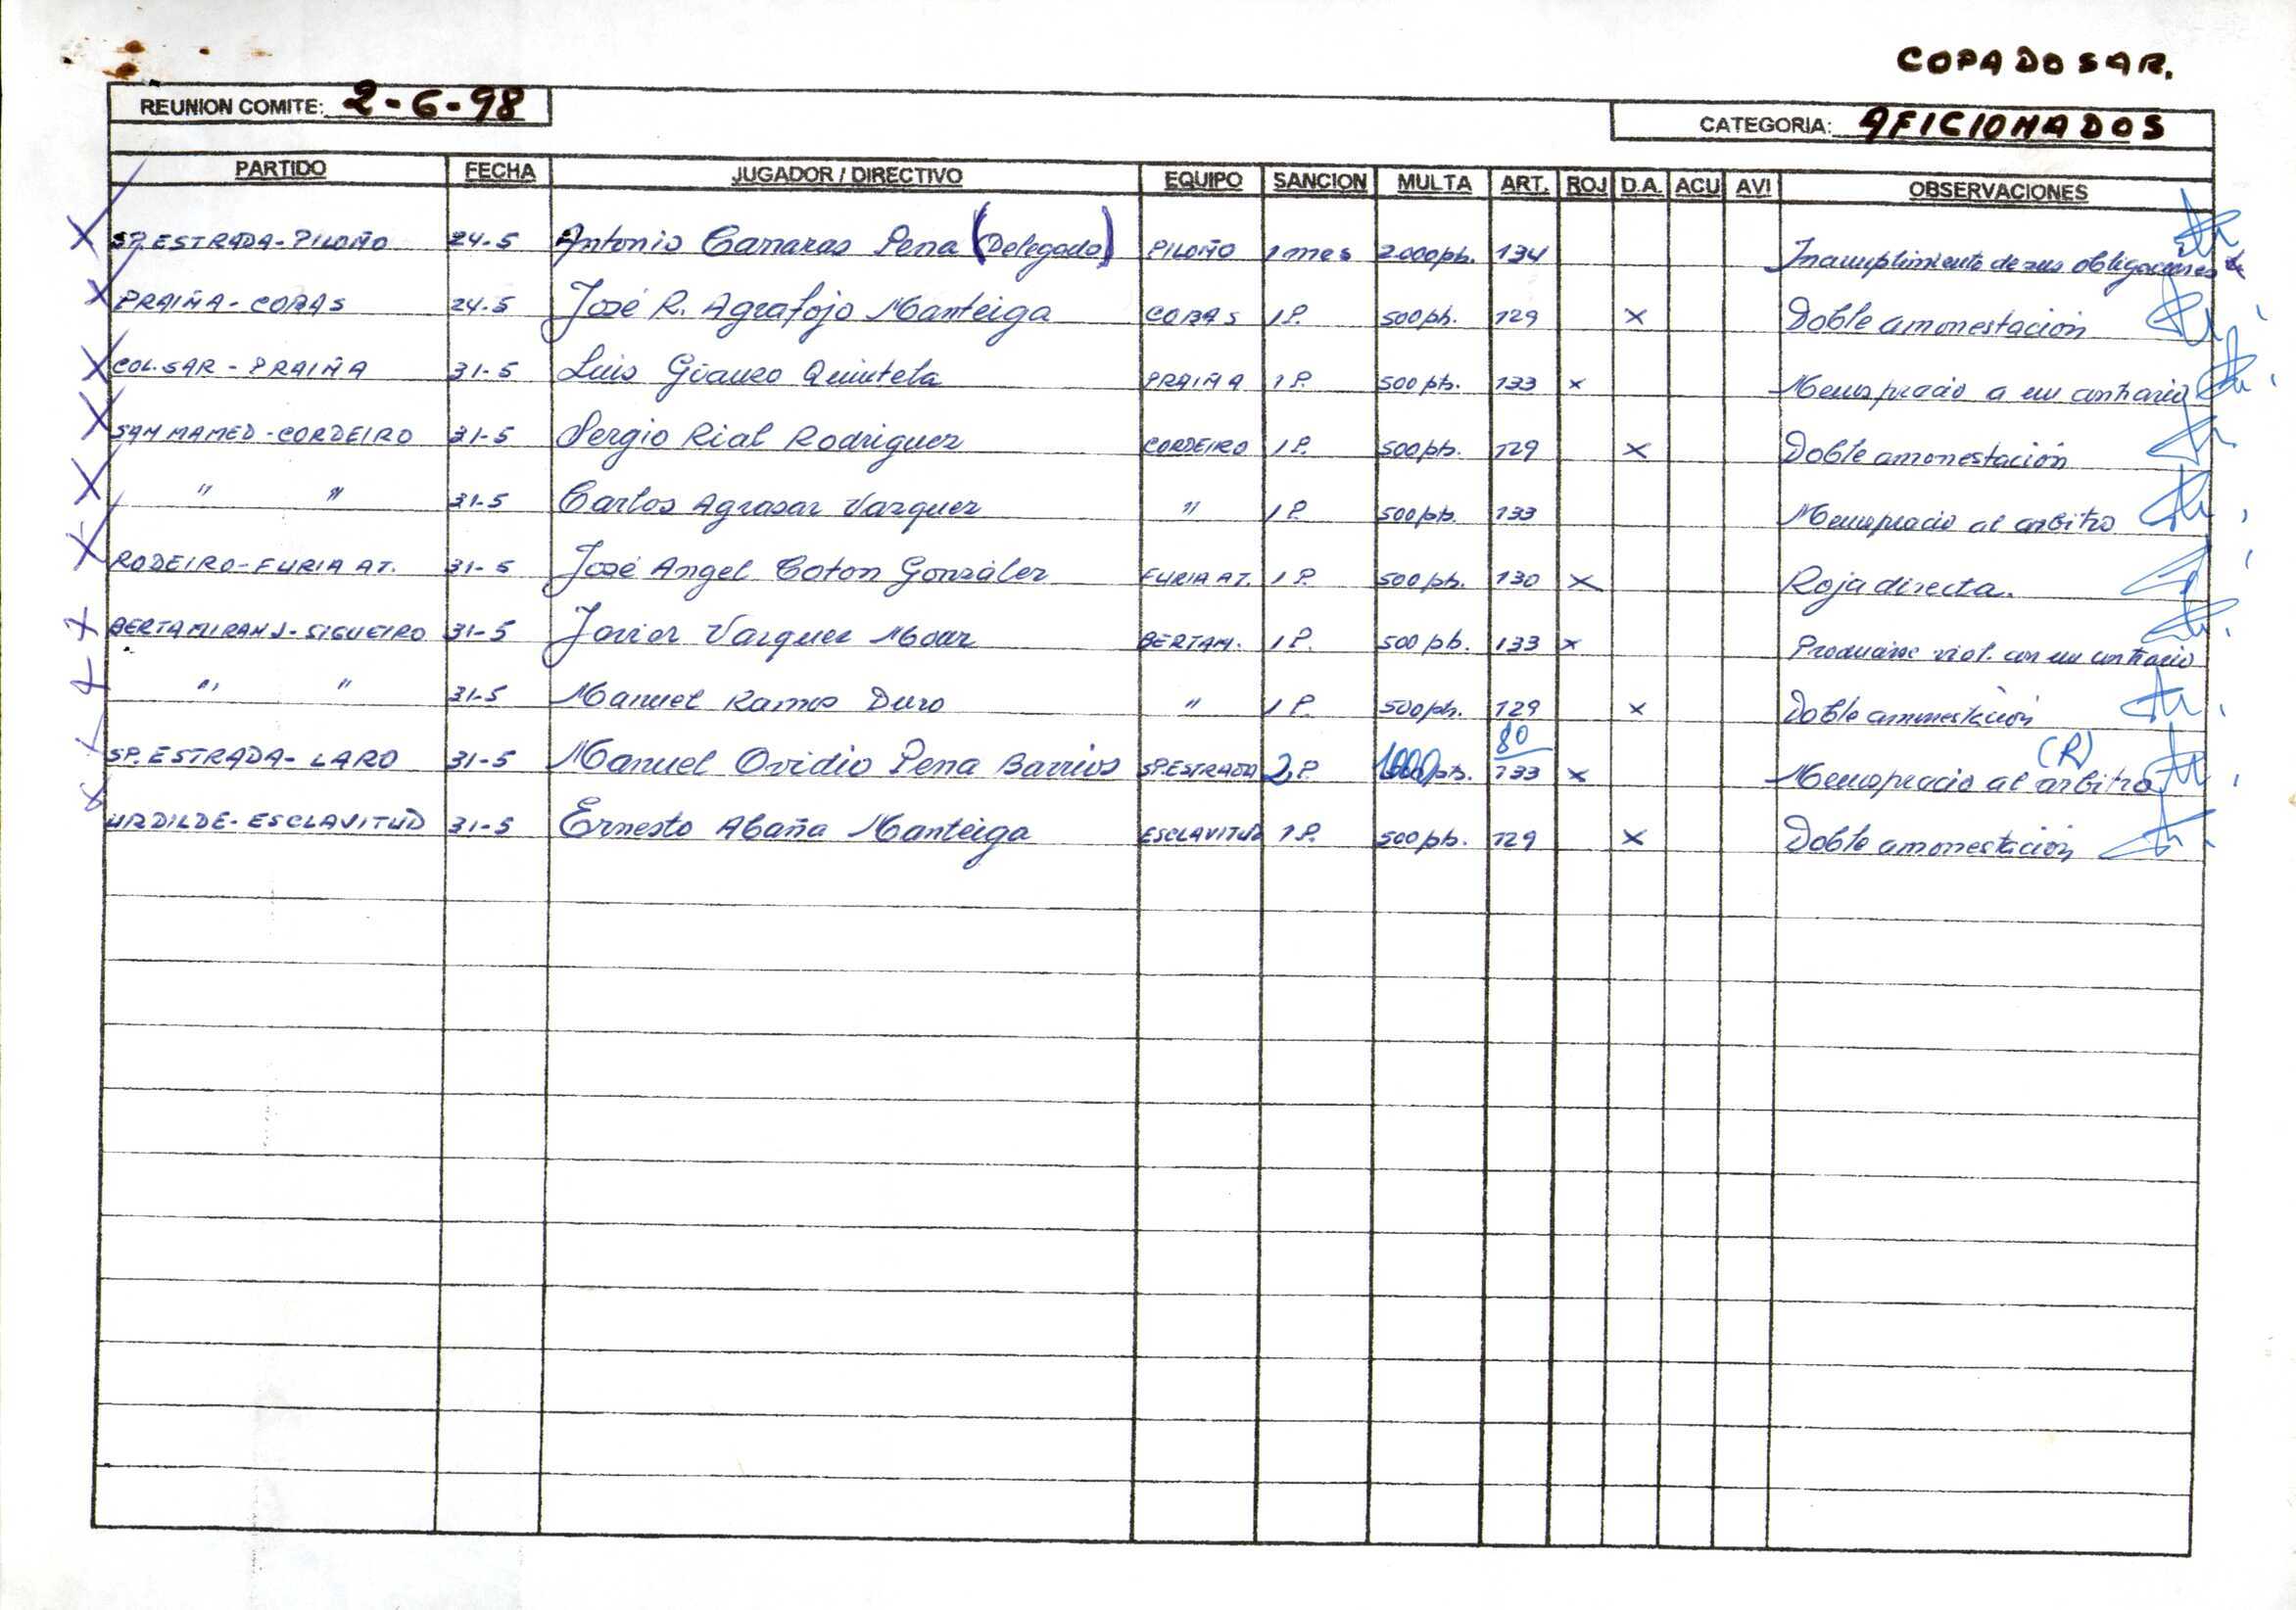 COPA DO SAR.
REUNION COMITE: 2-6-98 CATEGORIA: AFICIONADOS
PARTIDO FECHA JUGADOR / DIRECTIVO EQUIPO SANCION MULTA ART. ROJ D.A. ACU AVI OBSERVACIONES
X SP. ESTRADA-PILOÑO 24-5 Antonio Pena (Delegado) PILOÑO 1 mes 2.000 pts. 134 Incumplimiento de sus obligaciones
X PRAIÑA-COBAS 24-5 José R. Agrafojo Manteiga COBAS 1 P. 500 pts. 129 X Doble amonestación
X COL. SAR - PRAIÑA 31-5 Luis Quintela PRAIÑA 1 P. 500 pts. 133 X Menosprecio a un contrario
X SAN MAMED-CORDEIRO 31-5 Sergio Rial Rodriguez CORDEIRO 1 P. 500 pts. 129 X Doble amonestación
X " " 31-5 Carlos Agrasar Vazquez " 1 P. 500 pts. 133 Menosprecio al arbitro
X RODEIRO-FURIA AT. 31-5 José Angel Coton González FURIA AT. 1 P. 500 pts. 130 X Roja directa.
X BERTAMIRANS-SIGUEIRO 31-5 Javier Vazquez Moar BERTAM. 1 P. 500 pts. 133 X Producirse viol. con un contrario
X " " 31-5 Manuel Ramos Duro " 1 P. 500 pts. 129 X Doble amonestación
80 (R)
X SP. ESTRADA-LARO 31-5 Manuel Ovidio Pena Barrios SP. ESTRADA 2 P. 1000 pts. 133 X Menosprecio al arbitro
X URDILDE-ESCLAVITUD 31-5 Ernesto Abaña Manteiga ESCLAVITUD 1 P. 500 pts. 129 X Doble amonestación